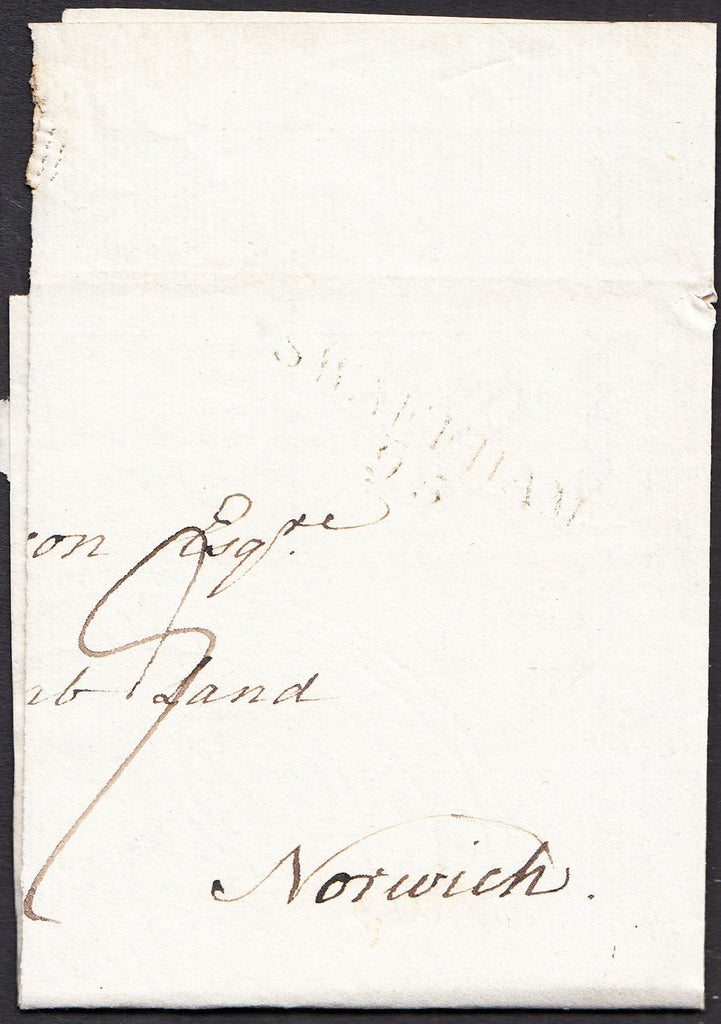 SWAFFHAM
95
on Esqre
nb Land
Norwich.